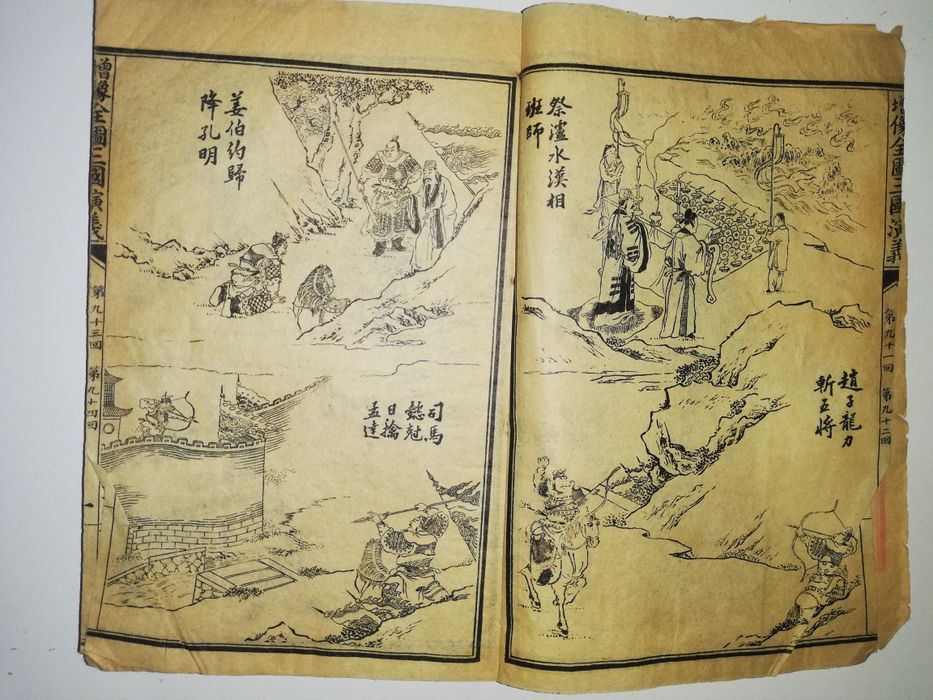 增像全圖三國演義
第九十一回
第九十二回
祭瀘水漢相
班師
趙子龍力
斬五將
姜伯約歸
降孔明
司馬
懿尅
日擒
孟達
增像全圖三國演義
第九十三回
第九十四回